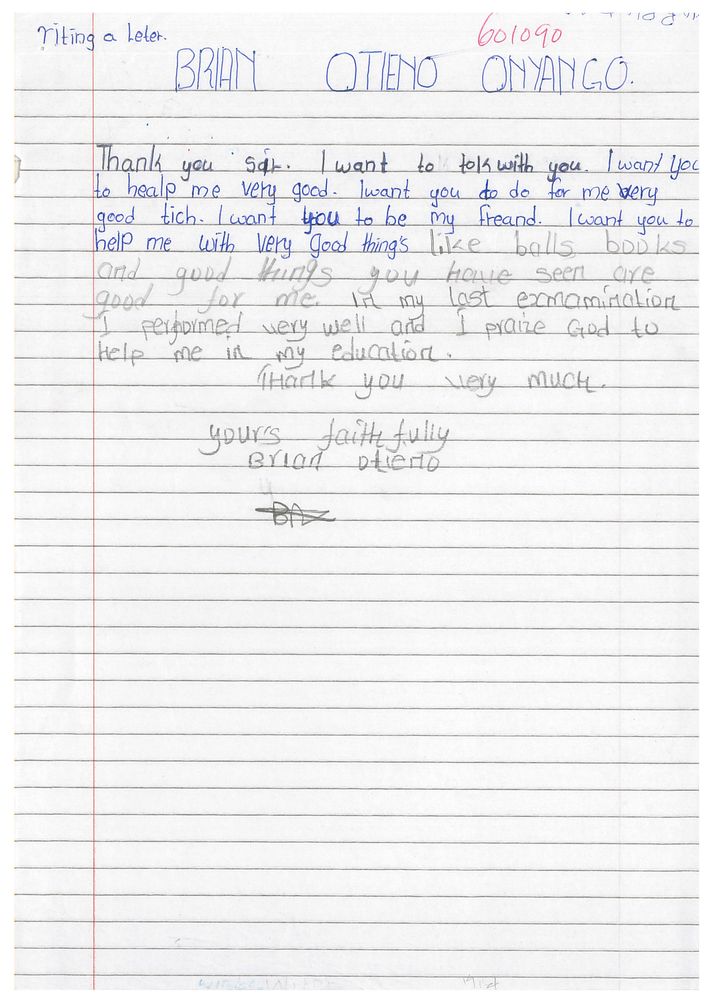 601090
riting a Leter.
BRIAN OTIENO ONYANGO.
Thank you sir. I want to tolk with you. I want you
to healp me very good. I want you to do for me very
good tich. I want you to be my freand. I want you to
help me with very Good thing's like balls books
and good things you have seen are
good for me. In my last exmamination
I performed very well and I praize God to
Help me in my education.
Thank you very much.
your's faithfully
Brian Otieno